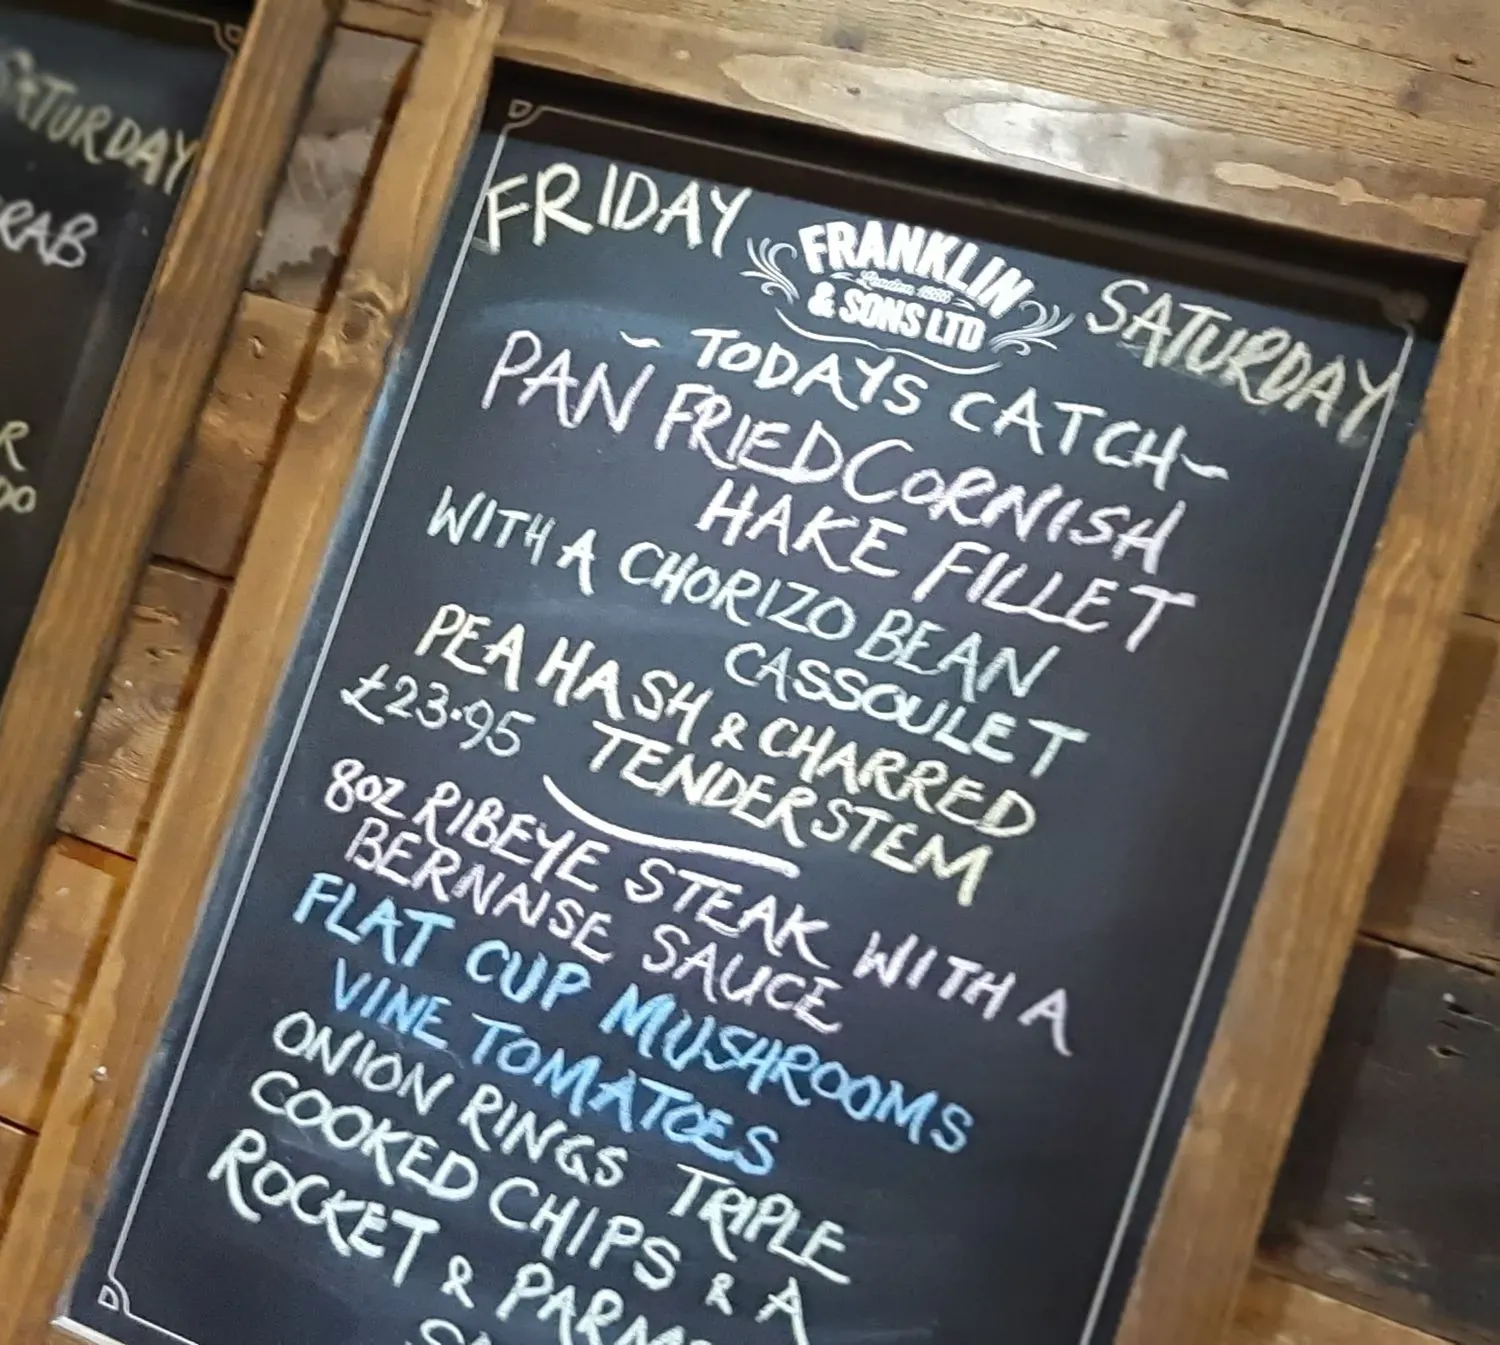 SATURDAY
FRIDAY
FRANKLIN
& SONS LTD
SATURDAY
~ TODAYS CATCH ~
PAN FRIED CORNISH
HAKE FILLET
WITH A CHORIZO BEAN
CASSOULET
PEA HASH & CHARRED
£23.95 TENDERSTEM
8oz RIBEYE STEAK WITH A
BERNAISE SAUCE
FLAT CUP MUSHROOMS
VINE TOMATOES
ONION RINGS TRIPLE
COOKED CHIPS & A
ROCKET &